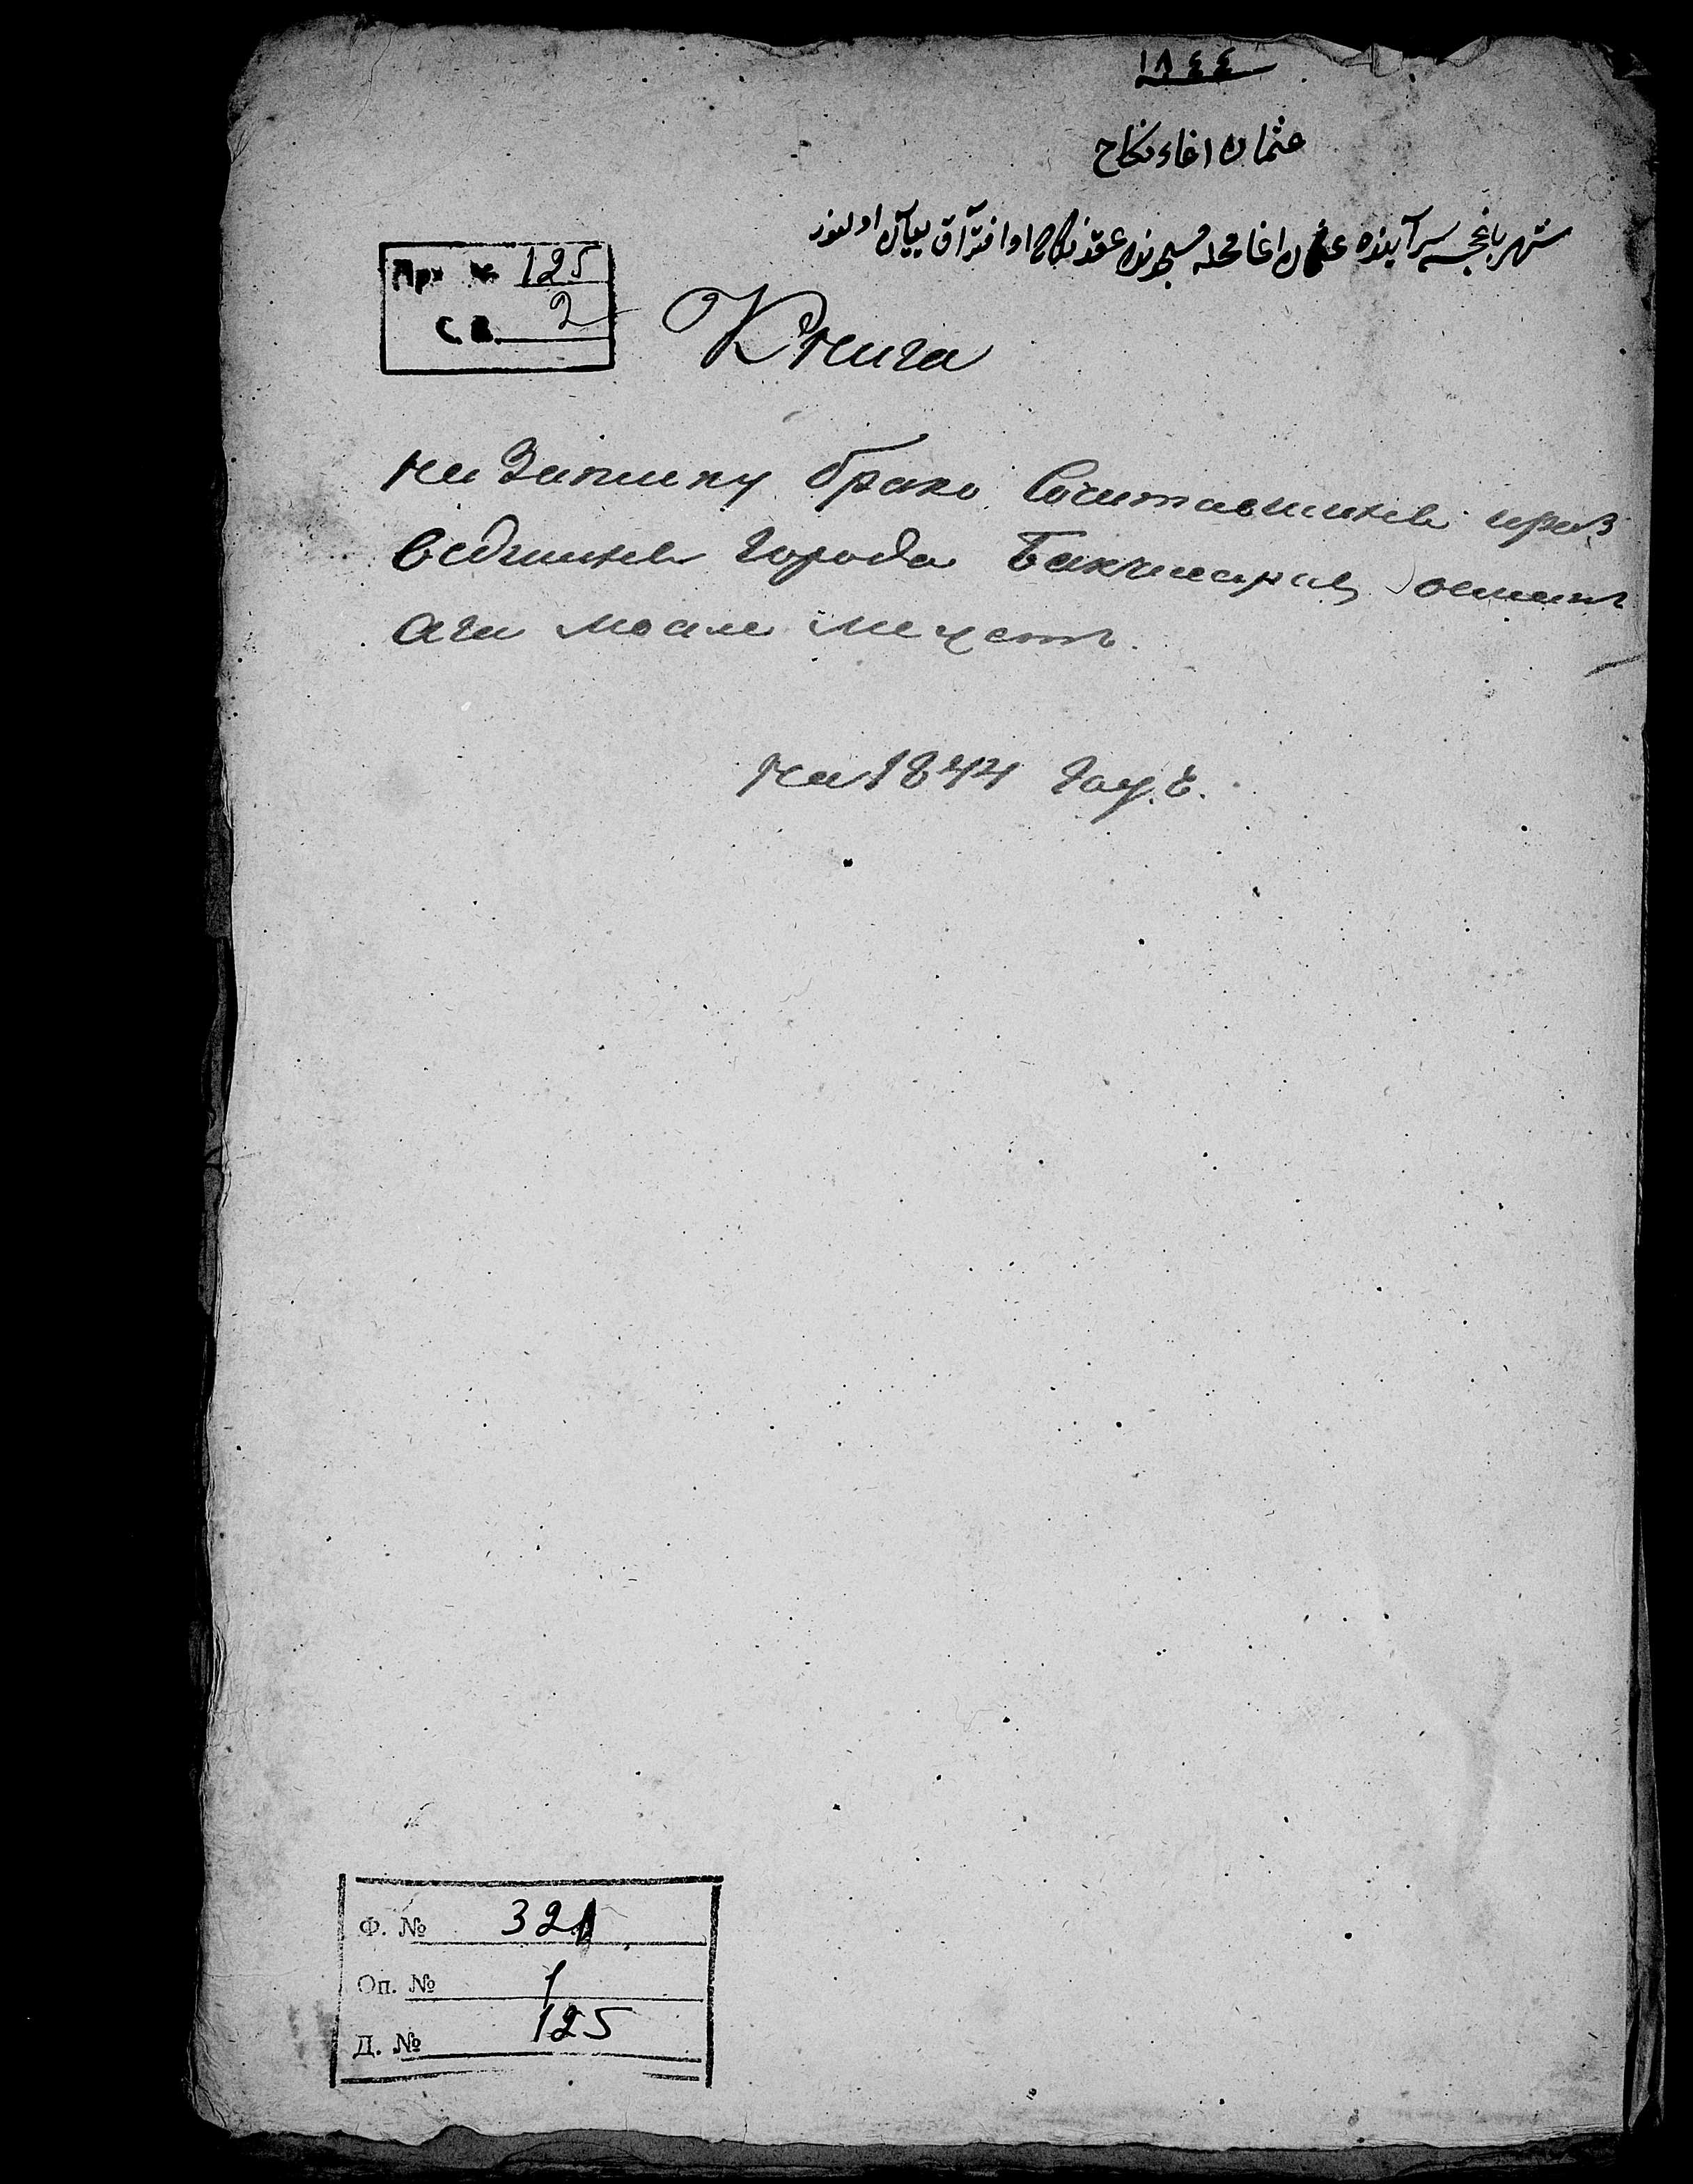 ١٨٤٤
عثمان اغاء نكاح
شهر باغچه سرآينده عثمان اغا محله مسجدنده عقد نكاح او افترآق بيآن اولنور
Пр. № 125
С. В. 2
Книга
на Записку брако Сочитавшихсе и раз
ведшихсе Города Бакчисарая осман
ага маале мечет.
на 1844 Году.
Ф. № 321
Оп. № 1
Д. № 125